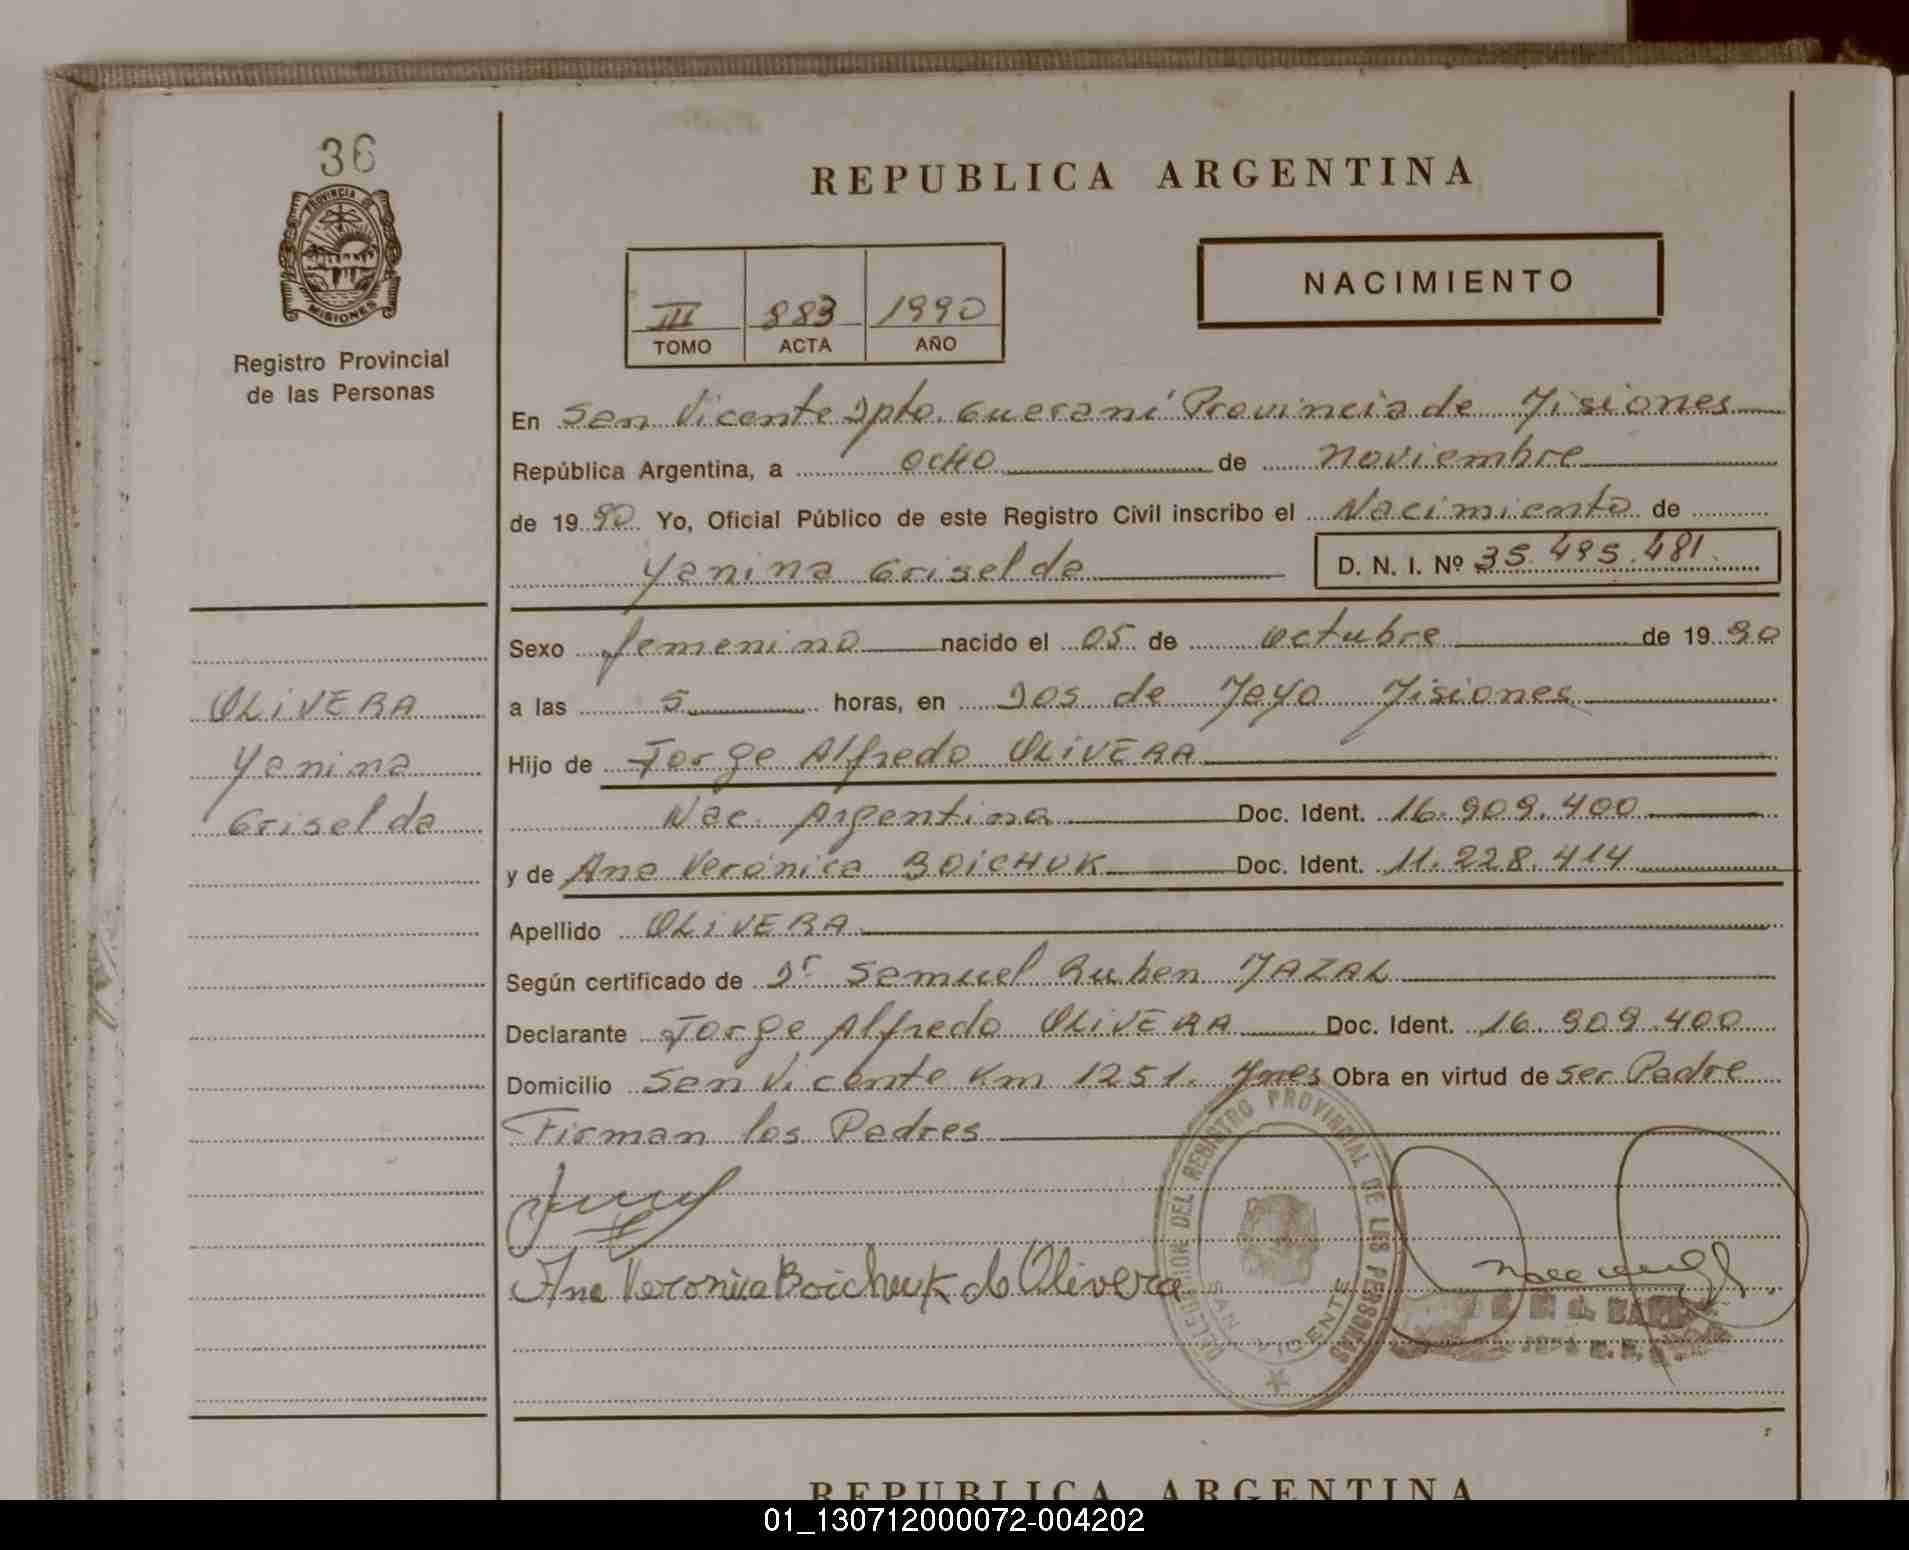 36
PROVINCIA DE
MISIONES
Registro Provincial
de las Personas
REPUBLICA ARGENTINA
III 883 1990
TOMO ACTA AÑO
NACIMIENTO
En San Vicente Dpto. Guaraní Provincia de Misiones
República Argentina, a OCHO de Noviembre
de 19 90 Yo, Oficial Público de este Registro Civil inscribo el Nacimiento de
Yanina Griselda
D. N. I. Nº 35.495.481.
Sexo femenino nacido el 05 de octubre de 19 90
a las 5 horas, en Dos de Mayo Misiones
Hijo de Jorge Alfredo OLIVERA
Nac. Argentina Doc. Ident. 16.909.400
y de Ana Verónica BOICHUK Doc. Ident. 11.228.414
Apellido OLIVERA
Según certificado de Dr Samuel Ruben MAZAL
Declarante Jorge Alfredo OLIVERA Doc. Ident. 16.909.400
Domicilio San Vicente Km 1251. Mnes Obra en virtud de ser Padre
Firman los Padres
OLIVERA
Yanina
Griselda
Ana Veronica Boichuk de Olivera
DELEGACION DEL REGISTRO PROVINCIAL DE LAS PERSONAS
SAN VICENTE
REPUBLICA ARGENTINA
01_130712000072-004202